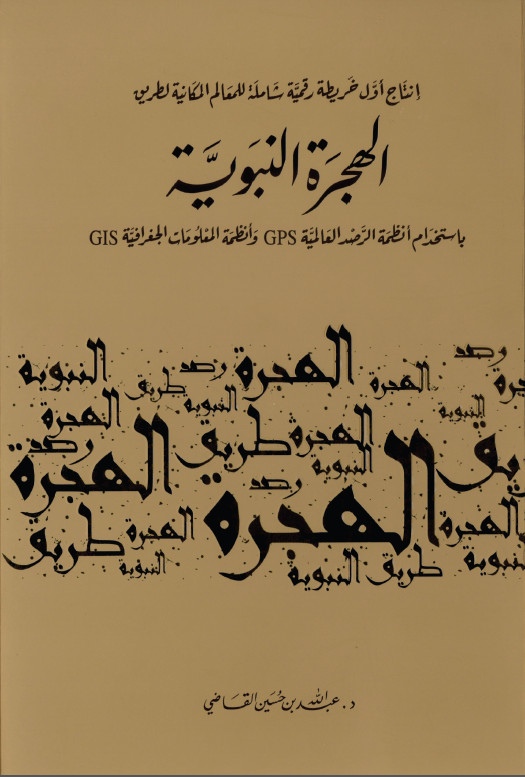 إنتَاج أوَّل خَريطة رقميَّة شَاملَة للمَعالم المكَانية لطريق
الهجرَة النبَويَّة
باستخدَام أنظمَة الرَّصْد العَالميَّة GPS وَأنظمَة المعْلُومَات الجغرافيَّة GIS
رصد
الهجرة
النبوية
رصد
الهجرة
هجرة
طريق
النبوية
النبوية
الهجرة
الهجرة
طريق
رصد
النبوية
يق
الهجرة
رصد
الهجرة
الهجرة
الهجرة
طريق
النبوية
النبوية
طريق
النبوية
د. عبدالله بن حُسَين القَاضي